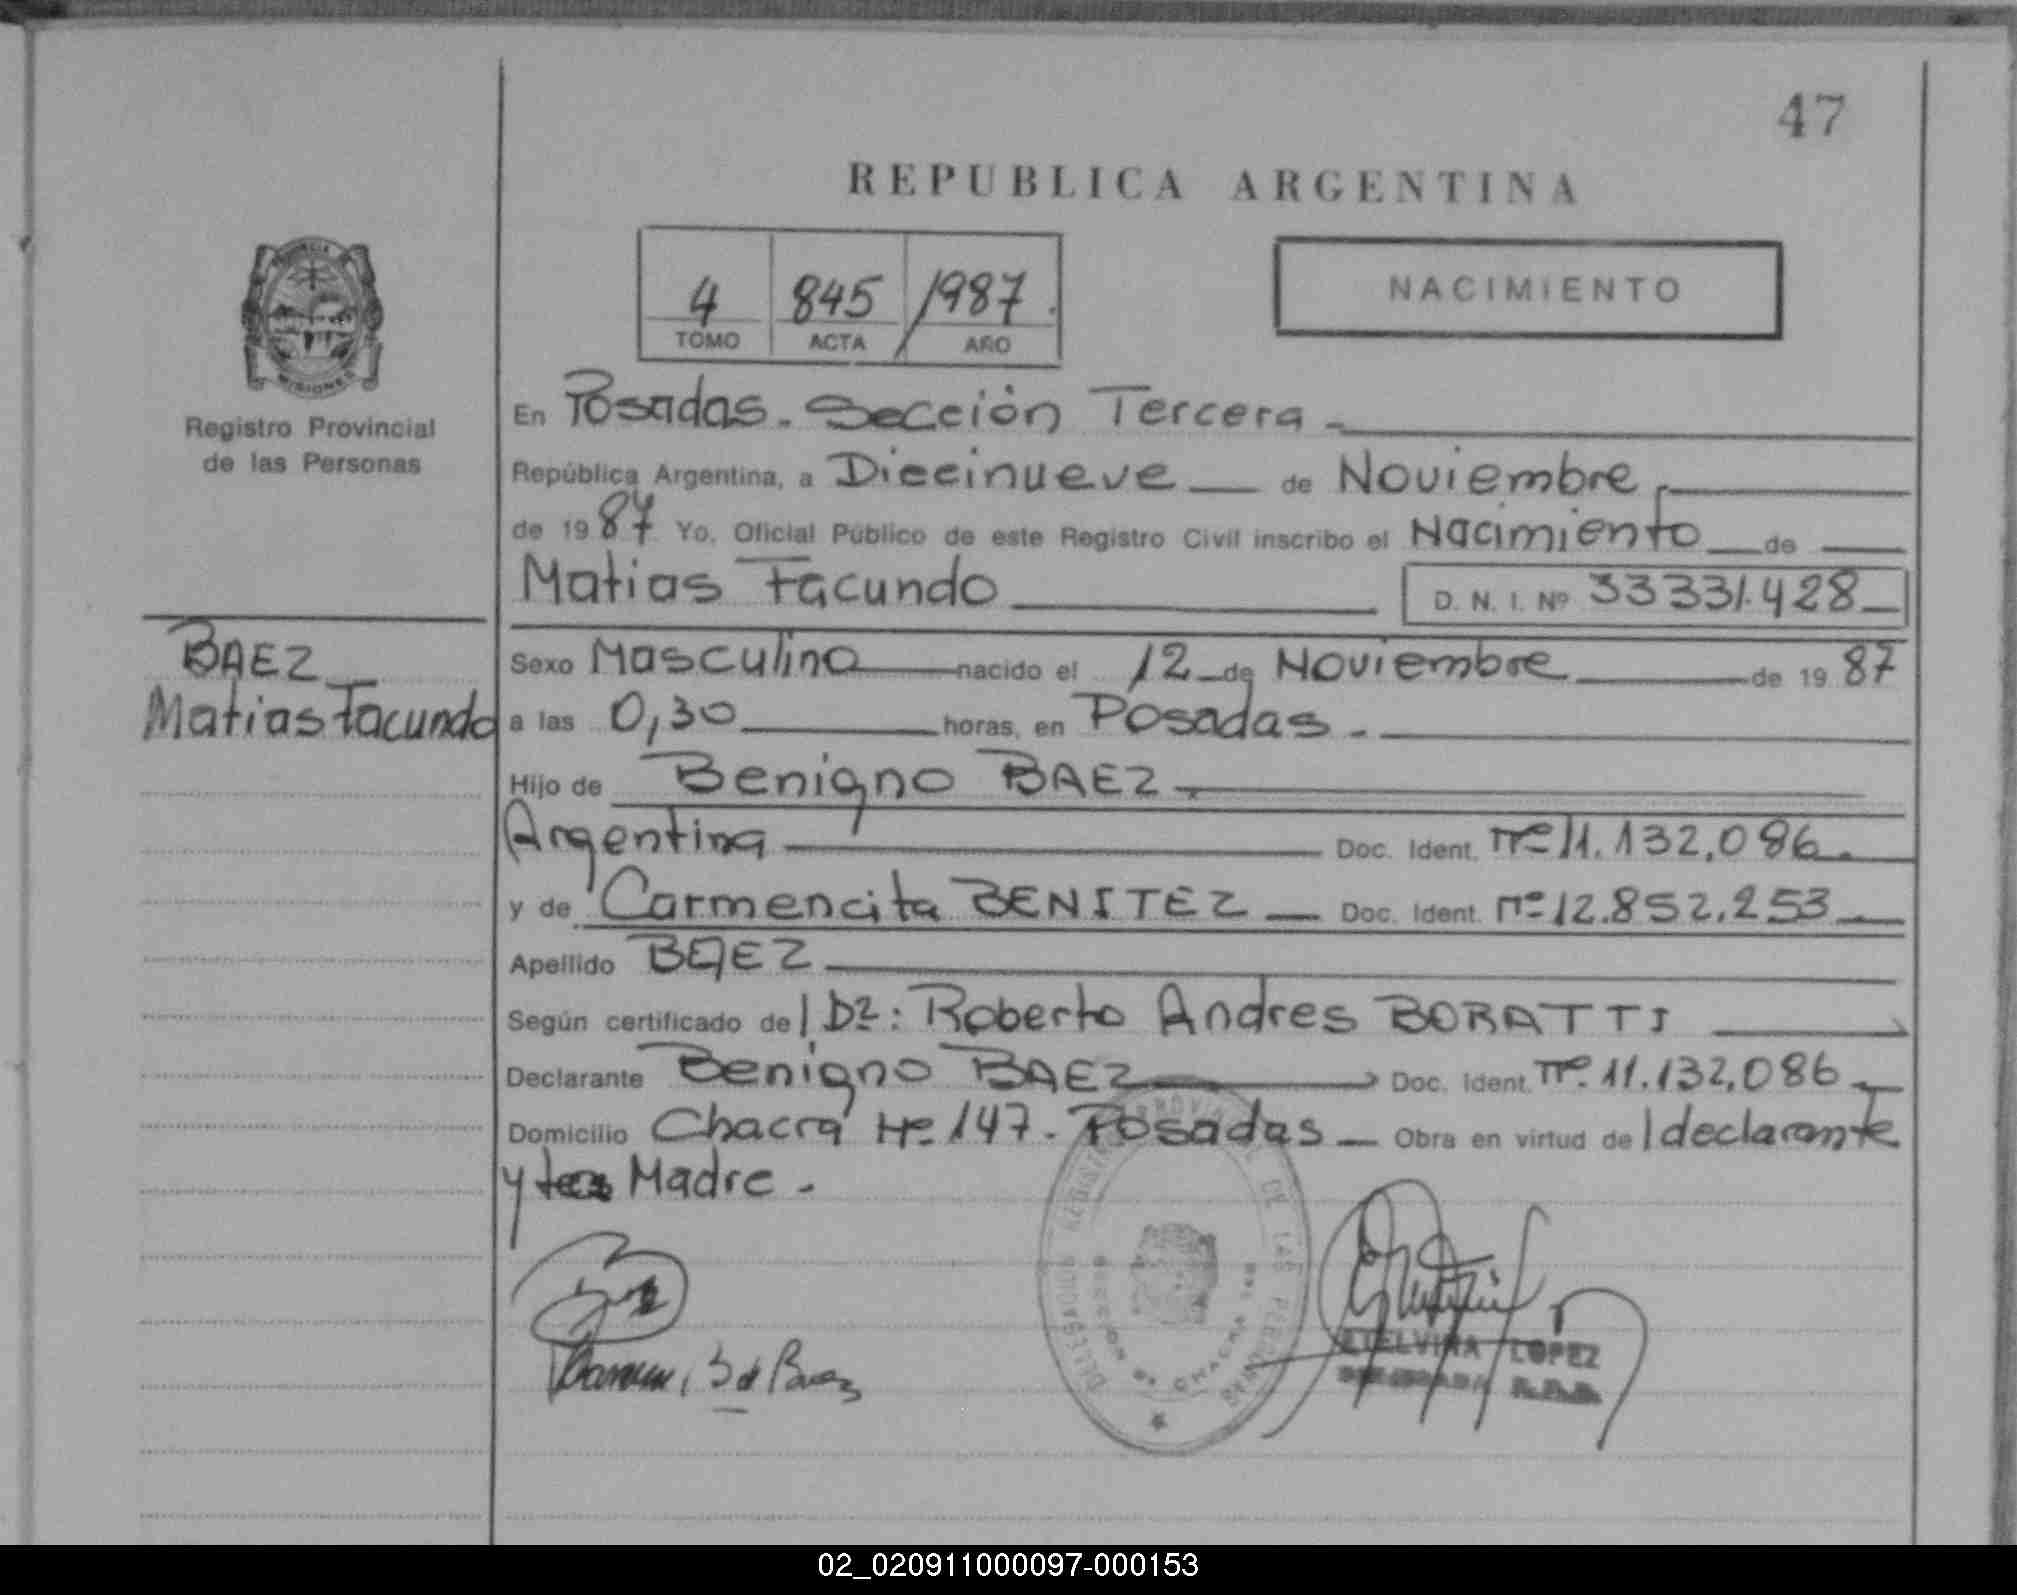 47
REPUBLICA ARGENTINA
4 845 /1987.
TOMO ACTA AÑO
NACIMIENTO
MISIONES
Registro Provincial
de las Personas
En Posadas. Sección Tercera
República Argentina, a Diecinueve de Noviembre
de 1987 Yo, Oficial Público de este Registro Civil inscribo el Nacimiento de
Matias Facundo D. N. I. Nº 33331.428
BAEZ
Matias Facundo
Sexo Masculino nacido el 12 de Noviembre de 1987
a las 0,30 horas, en Posadas.
Hijo de Benigno BAEZ
Argentina Doc. Ident. nº 11.132,086.
y de Carmencita BENITEZ Doc. Ident. nº 12.852,253
Apellido BAEZ
Según certificado del Dr: Roberto Andres BORATTI
Declarante Benigno BAEZ Doc. Ident. nº. 11.132,086
Domicilio Chacra Nº 147. Posadas Obra en virtud del declarante
y Madre.
DELEGACION REGISTRO PROVINCIAL DE LAS PERSONAS
CHACRA
B de Baez
LOPEZ
02_020911000097-000153